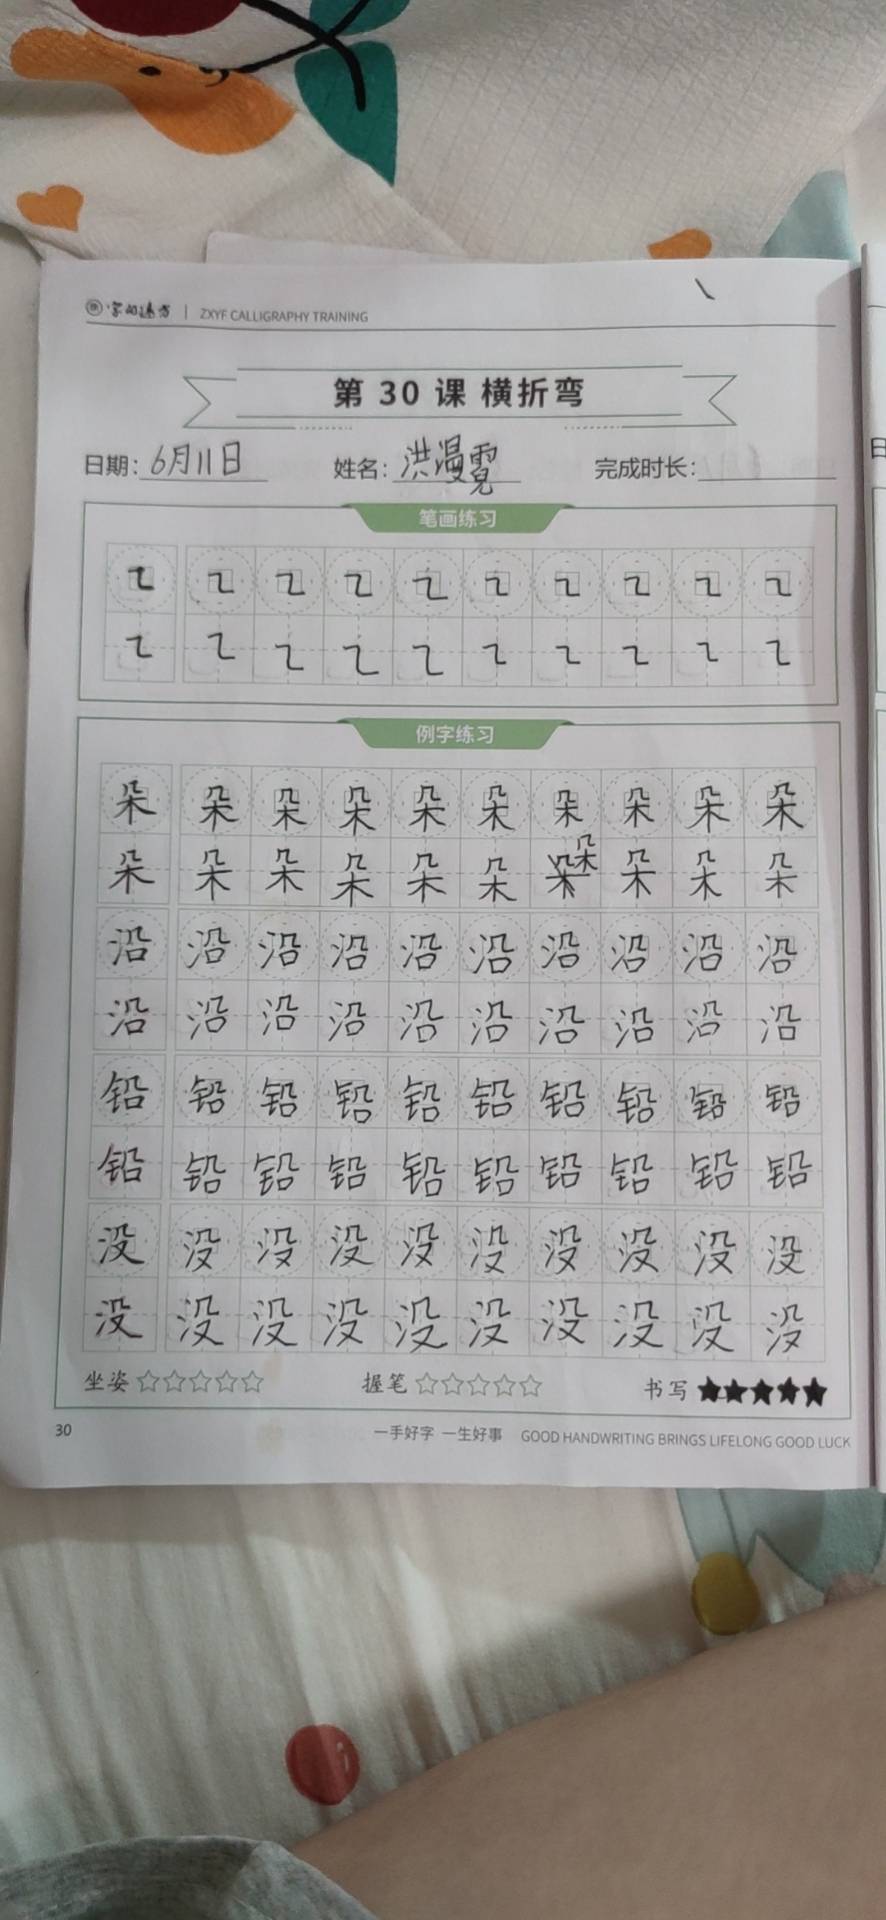 字的速方 | ZXYF CALLIGRAPHY TRAINING
第 30 课 横折弯
日期: 6月11日 姓名: 洪漫霓 完成时长:
笔画练习
㇍ ㇍ ㇍ ㇍ ㇍ ㇍ ㇍ ㇍ ㇍ ㇍
㇍ ㇍ ㇍ ㇍ ㇍ ㇍ ㇍ ㇍ ㇍ ㇍
例字练习
朵 朵 朵 朵 朵 朵 朵 朵 朵 朵
朵 朵 朵 朵 朵 朵 朵 朵 朵 朵 朵
沿 沿 沿 沿 沿 沿 沿 沿 沿 沿
沿 沿 沿 沿 沿 沿 沿 沿 沿 沿
铅 铅 铅 铅 铅 铅 铅 铅 铅 铅
铅 铅 铅 铅 铅 铅 铅 铅 铅 铅
没 没 没 没 没 没 没 没 没 没
没 没 没 没 没 没 没 没 没 没
坐姿 ☆☆☆☆☆ 握笔 ☆☆☆☆☆ 书写 ★★★★★
30 一手好字 一生好事 GOOD HANDWRITING BRINGS LIFELONG GOOD LUCK